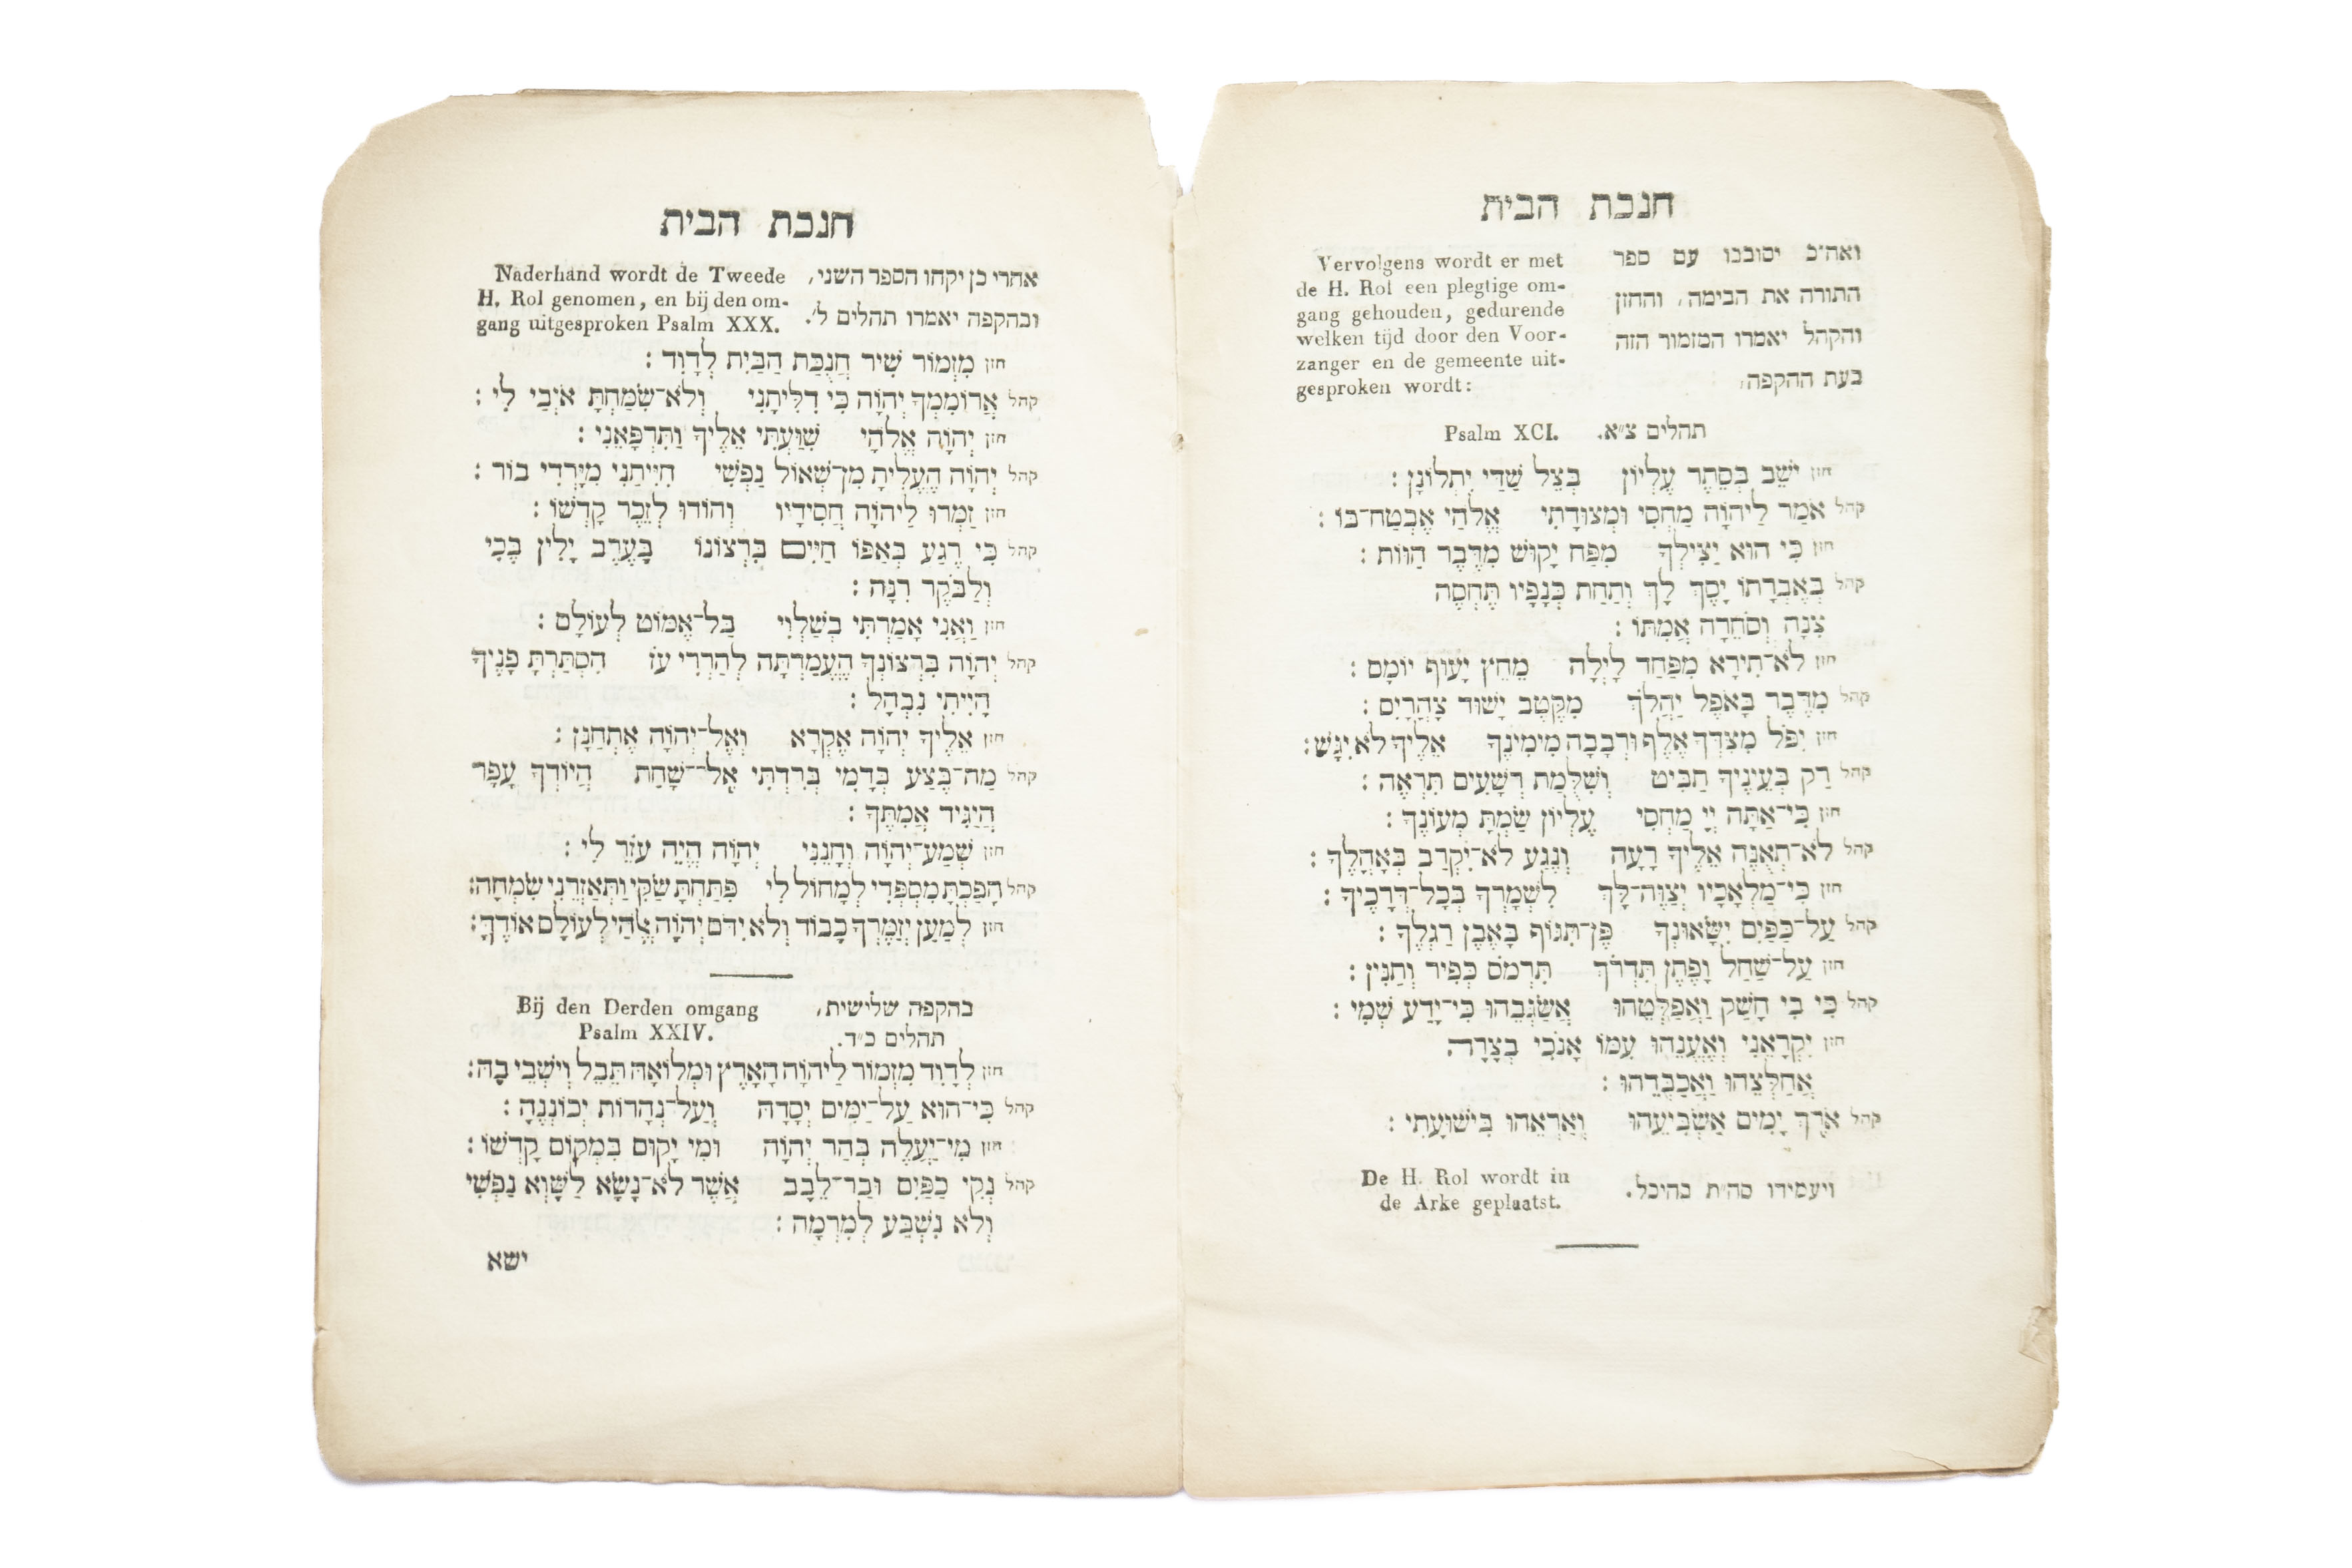 חנכת הבית
ואה״כ יסובבו עם ספר
התורה את הבימה, והחזן
והקהל יאמרו המזמור הזה
בעת ההקפה,
Vervolgens wordt er met
de H. Rol een plegtige om-
gang gehouden, gedurende
welken tijd door den Voor-
zanger en de gemeente uit-
gesproken wordt:
תהלים צ״א. Psalm XCI.
חזן יֹשֵׁב בְּסֵתֶר עֶלְיוֹן בְּצֵל שַׁדַּי יִתְלוֹנָן:
קהל אֹמַר לַיהֹוָה מַחְסִי וּמְצוּדָתִי אֱלֹהַי אֶבְטַח־בּוֹ:
חזן כִּי הוּא יַצִּילְךָ מִפַּח יָקוּשׁ מִדֶּבֶר הַוּוֹת:
קהל בְּאֶבְרָתוֹ יָסֶךְ לָךְ וְתַחַת כְּנָפָיו תֶּחְסֶה
צִנָּה וְסֹחֵרָה אֲמִתּוֹ:
חזן לֹא־תִירָא מִפַּחַד לָיְלָה מֵחֵץ יָעוּף יוֹמָם:
קהל מִדֶּבֶר בָּאֹפֶל יַהֲלֹךְ מִקֶּטֶב יָשׁוּד צָהֳרָיִם:
חזן יִפֹּל מִצִּדְּךָ אֶלֶף וּרְבָבָה מִימִינֶךָ אֵלֶיךָ לֹא יִגָּשׁ:
קהל רַק בְּעֵינֶיךָ תַבִּיט וְשִׁלֻּמַת רְשָׁעִים תִּרְאֶה:
חזן כִּי־אַתָּה יְיָ מַחְסִי עֶלְיוֹן שַׂמְתָּ מְעוֹנֶךָ:
קהל לֹא־תְאֻנֶּה אֵלֶיךָ רָעָה וְנֶגַע לֹא־יִקְרַב בְּאָהֳלֶךָ:
חזן כִּי־מַלְאָכָיו יְצַוֶּה־לָּךְ לִשְׁמָרְךָ בְּכָל־דְּרָכֶיךָ:
קהל עַל־כַּפַּיִם יִשָּׂאוּנְךָ פֶּן־תִּגּוֹף בָּאֶבֶן רַגְלֶךָ:
חזן עַל־שַׁחַל וָפֶתֶן תִּדְרֹךְ תִּרְמֹס כְּפִיר וְתַנִּין:
קהל כִּי בִי חָשַׁק וַאֲפַלְּטֵהוּ אֲשַׂגְּבֵהוּ כִּי־יָדַע שְׁמִי:
חזן יִקְרָאֵנִי וְאֶעֱנֵהוּ עִמּוֹ אָנֹכִי בְצָרָה.
אֲחַלְּצֵהוּ וַאֲכַבְּדֵהוּ:
קהל אֹרֶךְ יָמִים אַשְׂבִּיעֵהוּ וְאַרְאֵהוּ בִּישׁוּעָתִי:
ויעמידו סה״ת בהיכל.
De H. Rol wordt in
de Arke geplaatst.
חנכת הבית
אחרי כן יקחו הספר השני,
ובהקפה יאמרו תהלים ל׳.
Naderhand wordt de Tweede
H. Rol genomen, en bij den om-
gang uitgesproken Psalm XXX.
חזן מִזְמוֹר שִׁיר חֲנֻכַּת הַבַּיִת לְדָוִד:
קהל אֲרוֹמִמְךָ יְהֹוָה כִּי דִלִּיתָנִי וְלֹא־שִׂמַּחְתָּ אֹיְבַי לִי:
חזן יְהֹוָה אֱלֹהָי שִׁוַּעְתִּי אֵלֶיךָ וַתִּרְפָּאֵנִי:
קהל יְהֹוָה הֶעֱלִיתָ מִן־שְׁאוֹל נַפְשִׁי חִיִּיתַנִי מִיָּרְדִי בוֹר:
חזן זַמְּרוּ לַיהֹוָה חֲסִידָיו וְהוֹדוּ לְזֵכֶר קָדְשׁוֹ:
קהל כִּי רֶגַע בְּאַפּוֹ חַיִּים בִּרְצוֹנוֹ בָּעֶרֶב יָלִין בֶּכִי
וְלַבֹּקֶר רִנָּה:
חזן וַאֲנִי אָמַרְתִּי בְשַׁלְוִי בַּל־אֶמּוֹט לְעוֹלָם:
קהל יְהֹוָה בִּרְצוֹנְךָ הֶעֱמַדְתָּה לְהַרְרִי עֹז הִסְתַּרְתָּ פָנֶיךָ
הָיִיתִי נִבְהָל:
חזן אֵלֶיךָ יְהֹוָה אֶקְרָא וְאֶל־יְהֹוָה אֶתְחַנָּן:
קהל מַה־בֶּצַע בְּדָמִי בְּרִדְתִּי אֶל־שָׁחַת הֲיוֹדְךָ עָפָר
הֲיַגִּיד אֲמִתֶּךָ:
חזן שְׁמַע־יְהֹוָה וְחָנֵּנִי יְהֹוָה הֱיֵה עֹזֵר לִי:
קהל הָפַכְתָּ מִסְפְּדִי לְמָחוֹל לִי פִּתַּחְתָּ שַׂקִּי וַתְּאַזְּרֵנִי שִׂמְחָה:
חזן לְמַעַן יְזַמֶּרְךָ כָבוֹד וְלֹא יִדֹּם יְהֹוָה אֱלֹהַי לְעוֹלָם אוֹדֶךָּ:
בהקפה שלישית,
תהלים כ״ד.
Bij den Derden omgang
Psalm XXIV.
חזן לְדָוִד מִזְמוֹר לַיהֹוָה הָאָרֶץ וּמְלוֹאָהּ תֵּבֵל וְיֹשְׁבֵי בָהּ:
קהל כִּי־הוּא עַל־יַמִּים יְסָדָהּ וְעַל־נְהָרוֹת יְכוֹנְנֶהָ:
חזן מִי־יַעֲלֶה בְהַר יְהֹוָה וּמִי יָקוּם בִּמְקוֹם קָדְשׁוֹ:
קהל נְקִי כַפַּיִם וּבַר־לֵבָב אֲשֶׁר לֹא־נָשָׂא לַשָּׁוְא נַפְשִׁי
וְלֹא נִשְׁבַּע לְמִרְמָה:
ישא